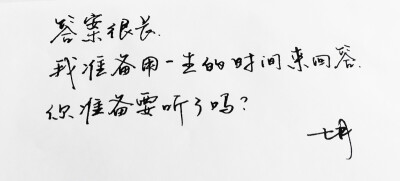 答案很长.
我准备用一生的时间来回答.
你准备要听了吗?